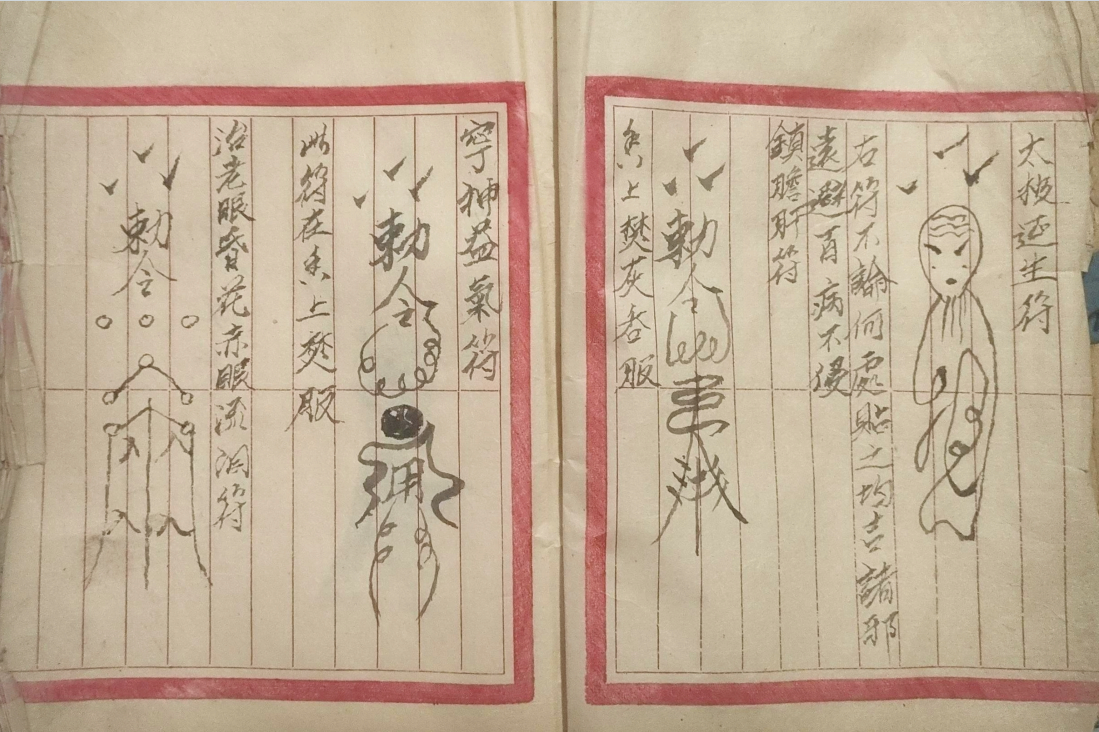 太极延生符
右符不論何處貼之均吉諸邪
遠避百病不侵
鎮膽肝符
勅令
香上焚灰吞服
寧神益氣符
勅令
此符在香上焚服
治老眼昏花赤眼流泪符
勅令